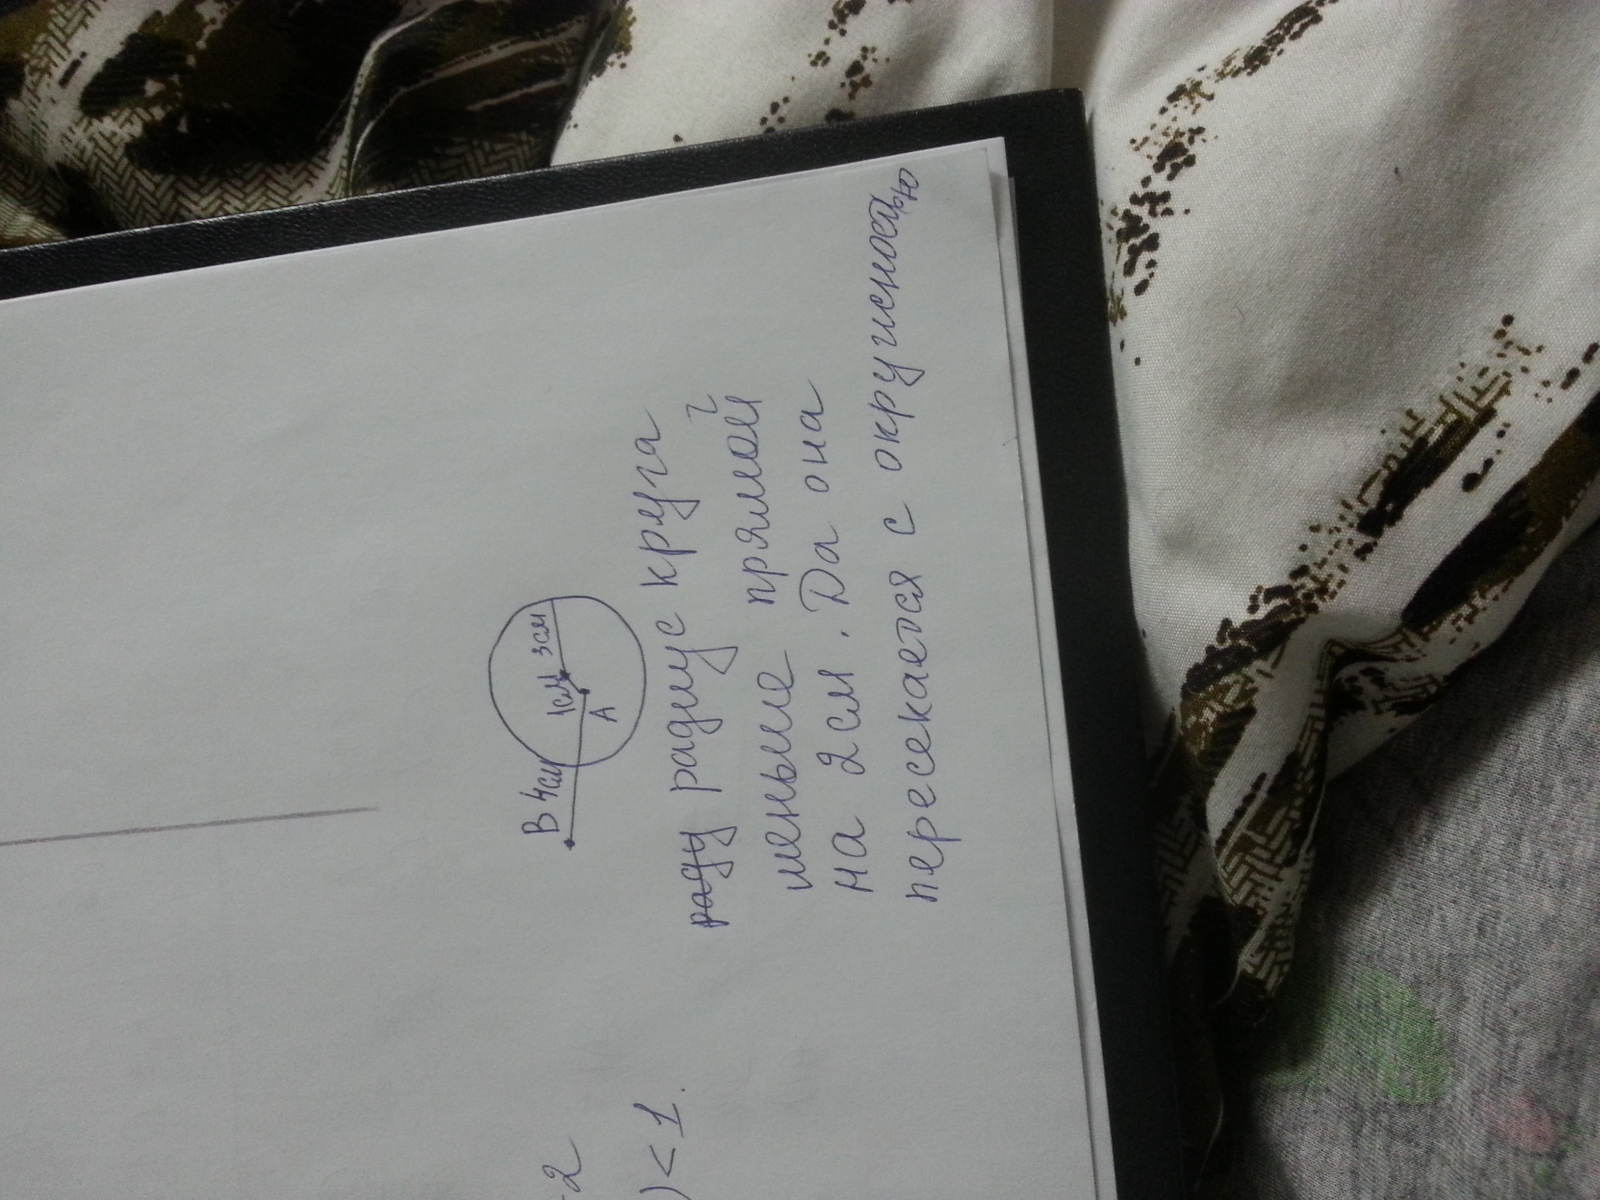 B 4см
1см 3см
A
радиус круга
меньше прямой
на 2 см. Да она
пересекается с окружностью
-2
) < 1.